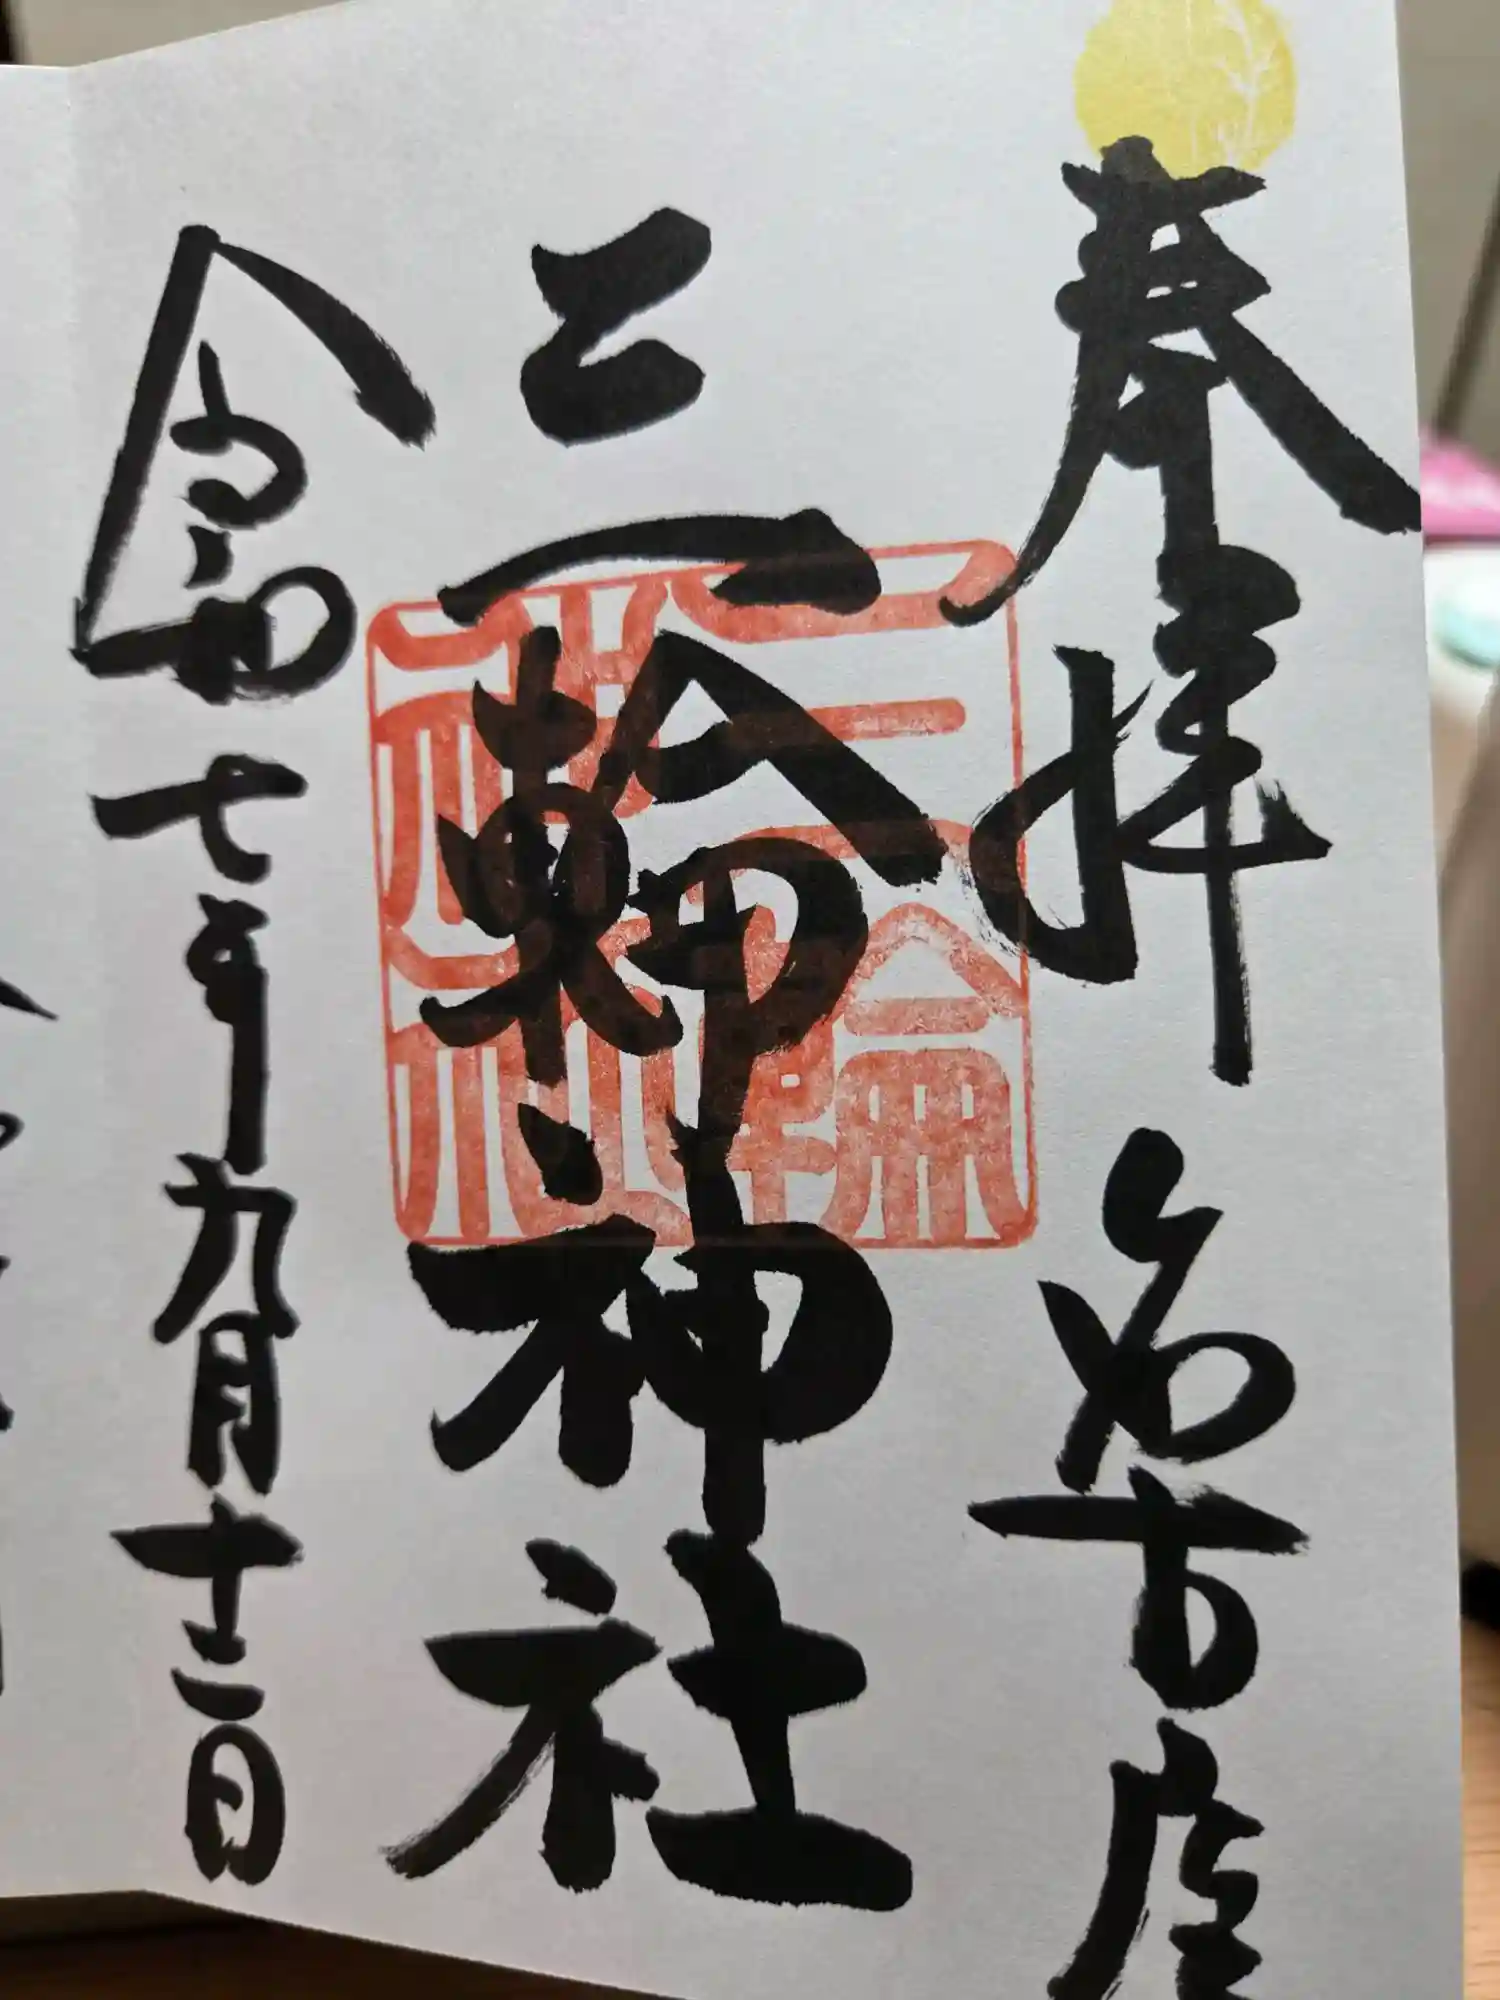 奉拝 名古屋
三輪神社
三輪神社
令和七年九月十二日